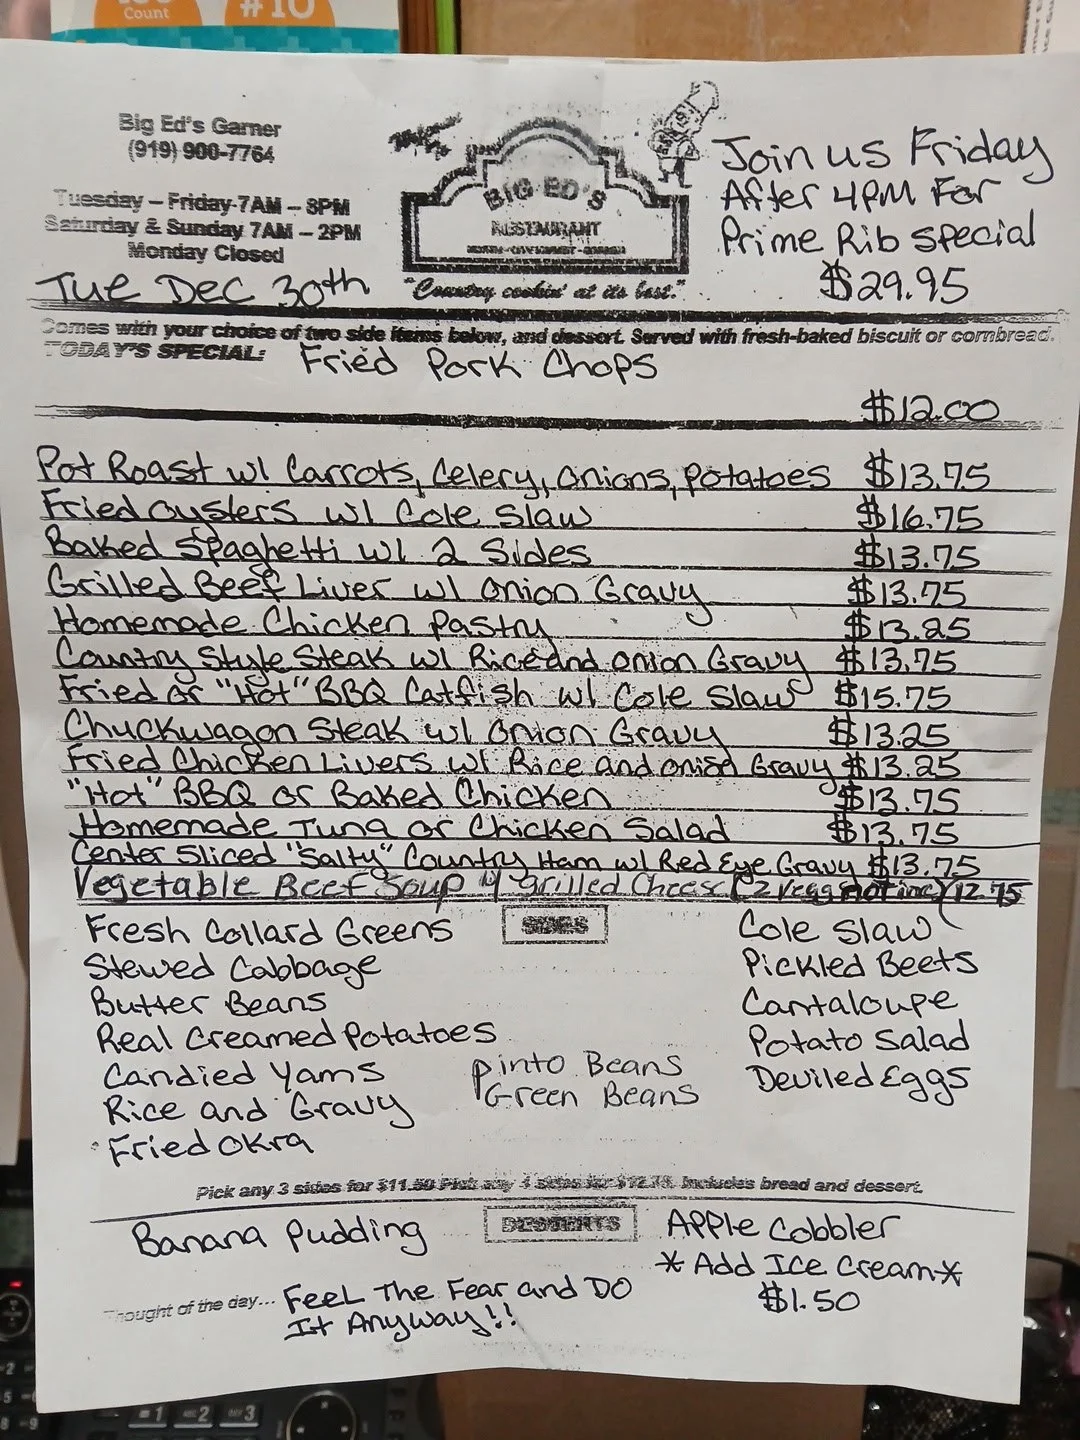 Count
#10
Big Ed's Garner
(919) 900-7764
Tuesday – Friday 7AM – 8PM
Saturday & Sunday 7AM – 2PM
Monday Closed
Tue Dec 30th
BIG ED'S
RESTAURANT
"Country cookin' at its best."
Join us Friday
After 4PM For
Prime Rib Special
$29.95
Comes with your choice of two side items below, and dessert. Served with fresh-baked biscuit or cornbread.
TODAY'S SPECIAL: Fried Pork Chops
$12.00
Pot Roast w/ Carrots, Celery, Onions, Potatoes $13.75
Fried Oysters w/ Cole Slaw $16.75
Baked Spaghetti w/ 2 Sides $13.75
Grilled Beef Liver w/ Onion Gravy $13.75
Homemade Chicken Pastry $13.25
Country Style Steak w/ Rice and Onion Gravy $13.75
Fried or "Hot" BBQ Catfish w/ Cole Slaw $15.75
Chuckwagon Steak w/ Onion Gravy $13.25
Fried Chicken Livers w/ Rice and Onion Gravy $13.25
"Hot" BBQ or Baked Chicken $13.75
Homemade Tuna or Chicken Salad $13.75
Center Sliced "Salty" Country Ham w/ Red Eye Gravy $13.75
Vegetable Beef Soup w/ grilled Cheese (2 Vegg not inc) 12.75
SIDES
Fresh Collard Greens
Stewed Cabbage
Butter Beans
Real Creamed Potatoes
Candied Yams
Rice and Gravy
Fried Okra
Pinto Beans
Green Beans
Cole Slaw
Pickled Beets
Cantaloupe
Potato Salad
Deviled Eggs
Pick any 3 sides for $11.50 Pick any 4 sides for $12.75. Includes bread and dessert.
DESSERTS
Banana Pudding
Apple Cobbler
*Add Ice Cream*
$1.50
Thought of the day... Feel The Fear and Do
It Anyway!!